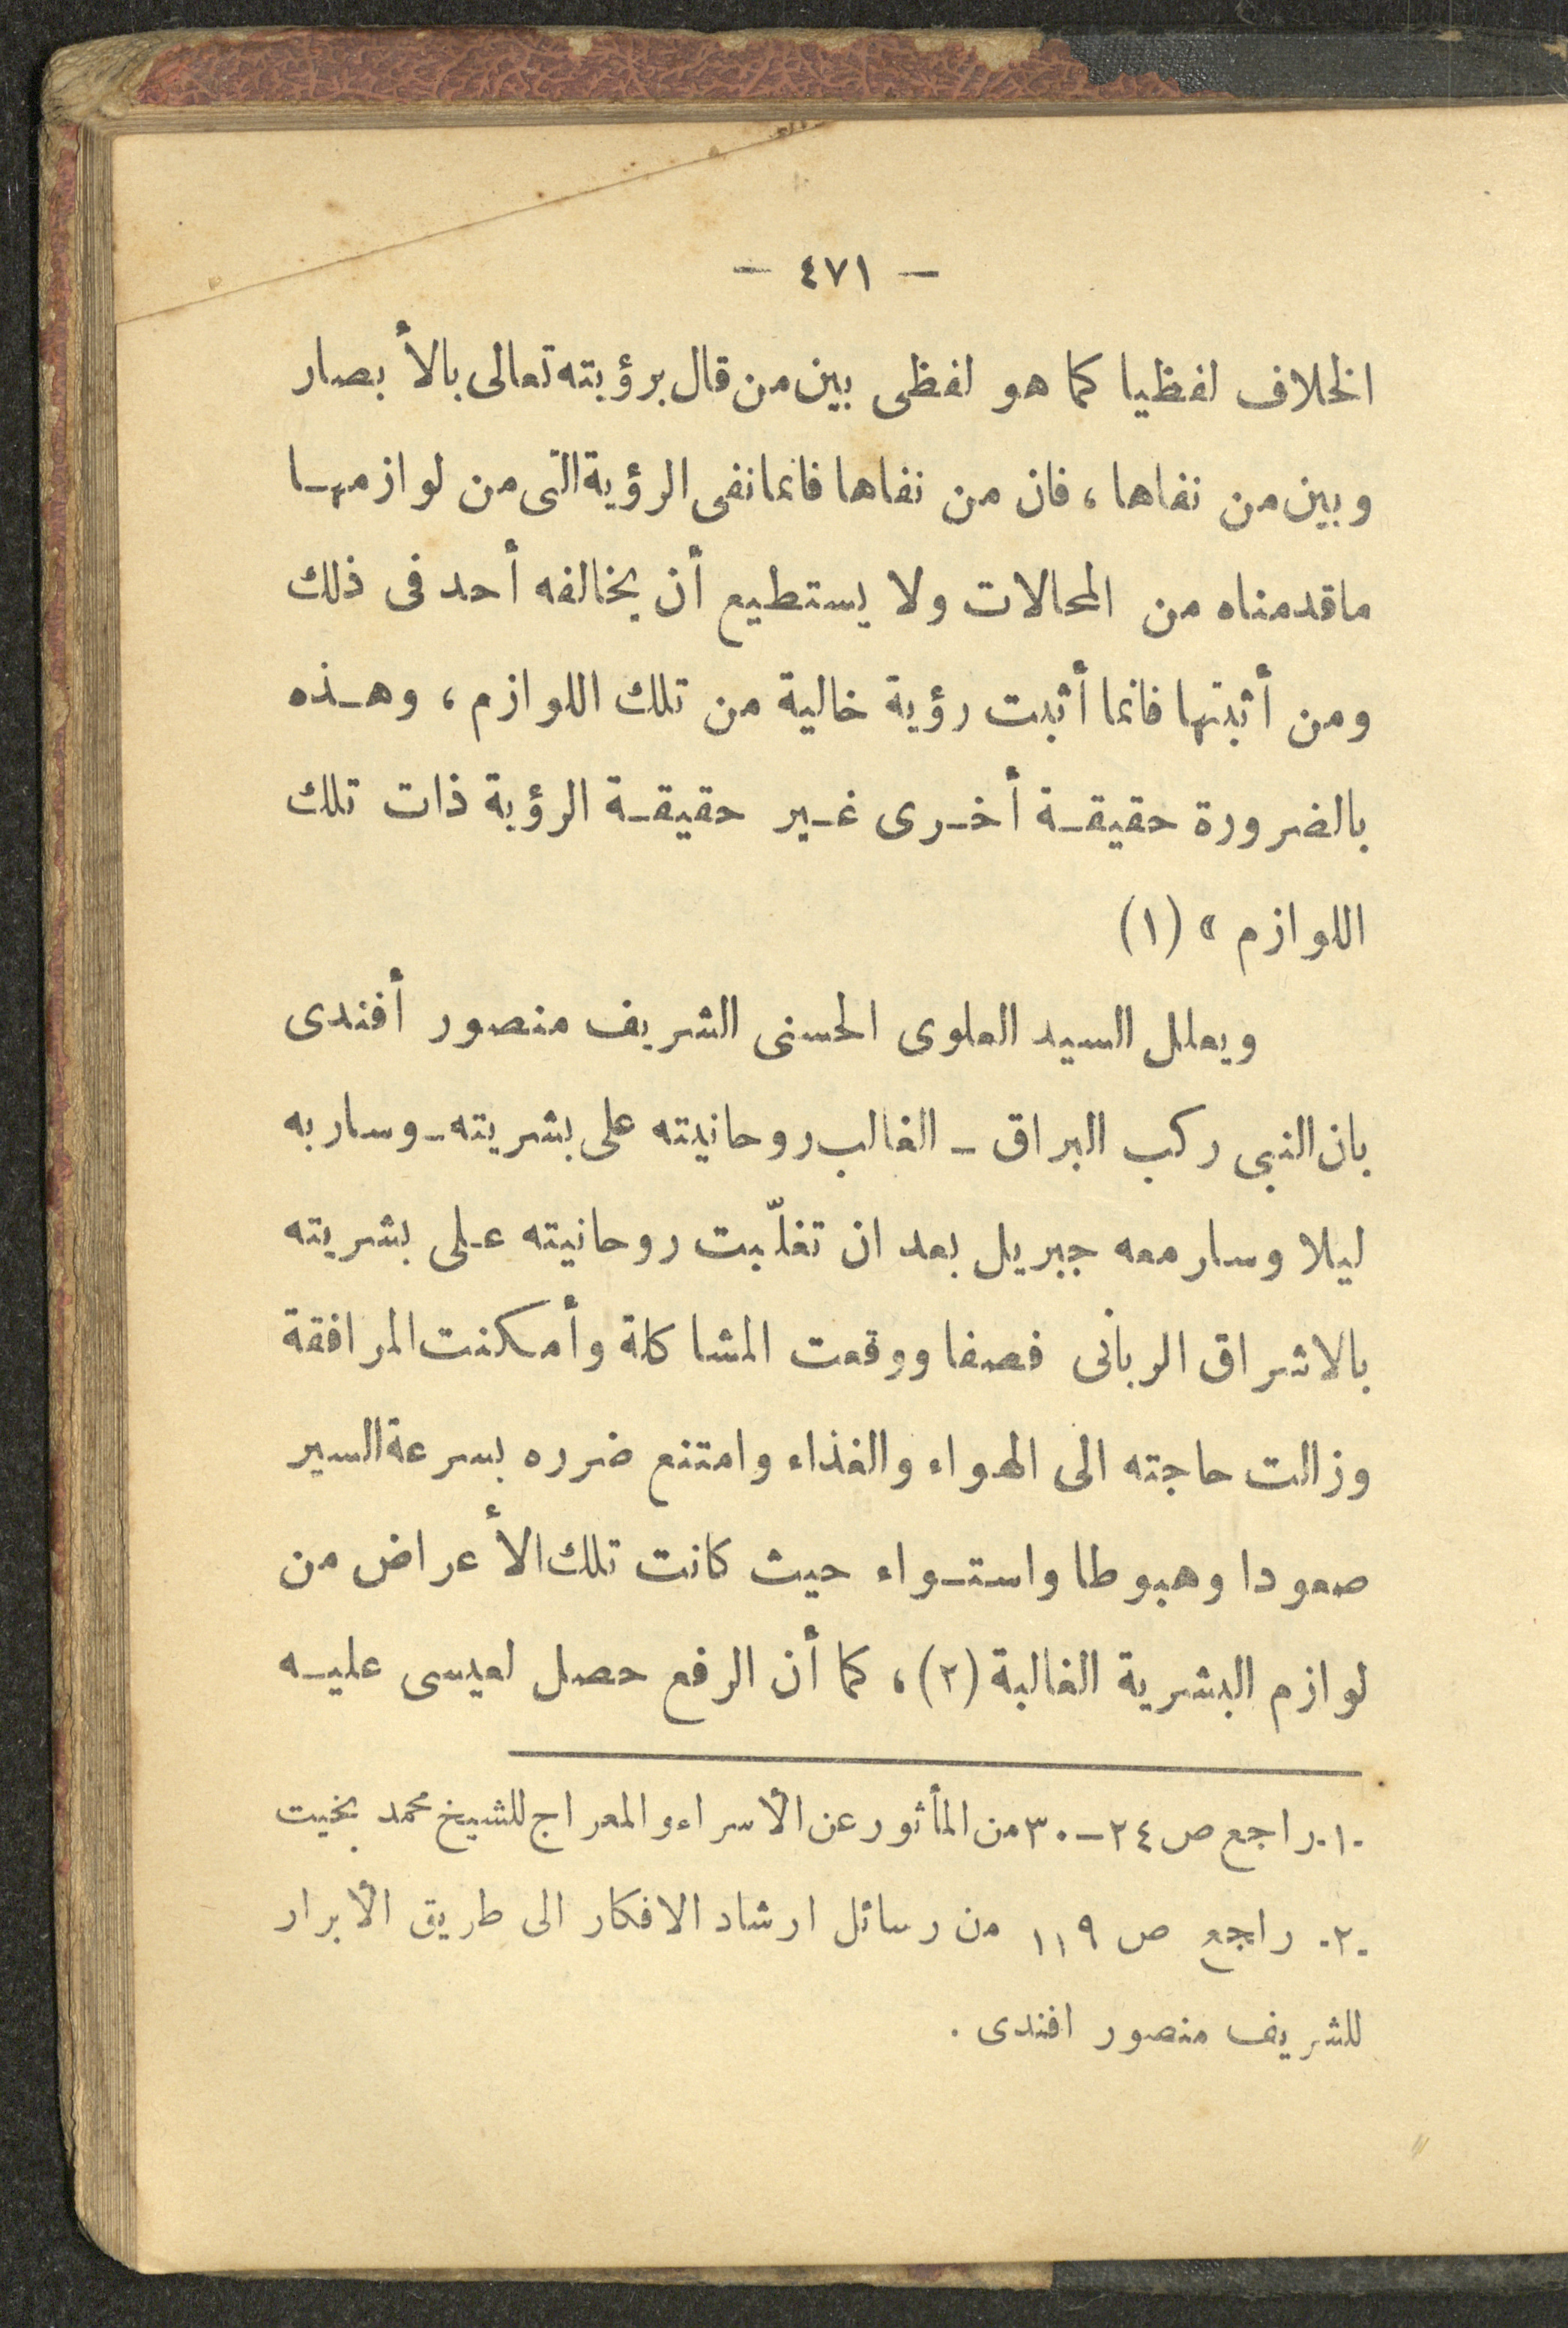 — ٤٧١ —
الخلاف لفظيا كما هو لفظى بين من قال برؤيته تعالى بالأبصار
وبين من نفاها، فان من نفاها فانما نفى الرؤية التى من لوازمهـا
ماقدمناه من المحالات ولا يستطيع أن يخالفه أحد فى ذلك
ومن أثبتها فانما أثبت رؤية خالية من تلك اللوازم، وهـذه
بالضرورة حقيقـة أخـرى غـير حقيقـة الرؤية ذات تلك
اللوازم » (١)
ويعلل السيد العلوى الحسنى الشريف منصور أفندى
بان النبى ركب البراق ـ الغالب روحانيته على بشريته ـ وسار به
ليلا وسار معه جبريل بعد ان تغلّبت روحانيته عـلى بشريته
بالاشراق الربانى فصفا ووقعت المشاكلة وأمكنت المرافقة
وزالت حاجته الى الهواء والغذاء وامتنع ضرره بسرعة السير
صعودا وهبوطا واستـواء حيث كانت تلك الأعراض من
لوازم البشرية الغالبة (٢)، كما أن الرفع حصل لعيسى عليـه
.١. راجع ص ٢٤ــ٣٠ من المأثور عن الأسراء والمعراج للشيخ محمد بخيت
.٢. راجع ص ١١٩ من رسائل ارشاد الافكار الى طريق الأبرار
للشريف منصور افندى .